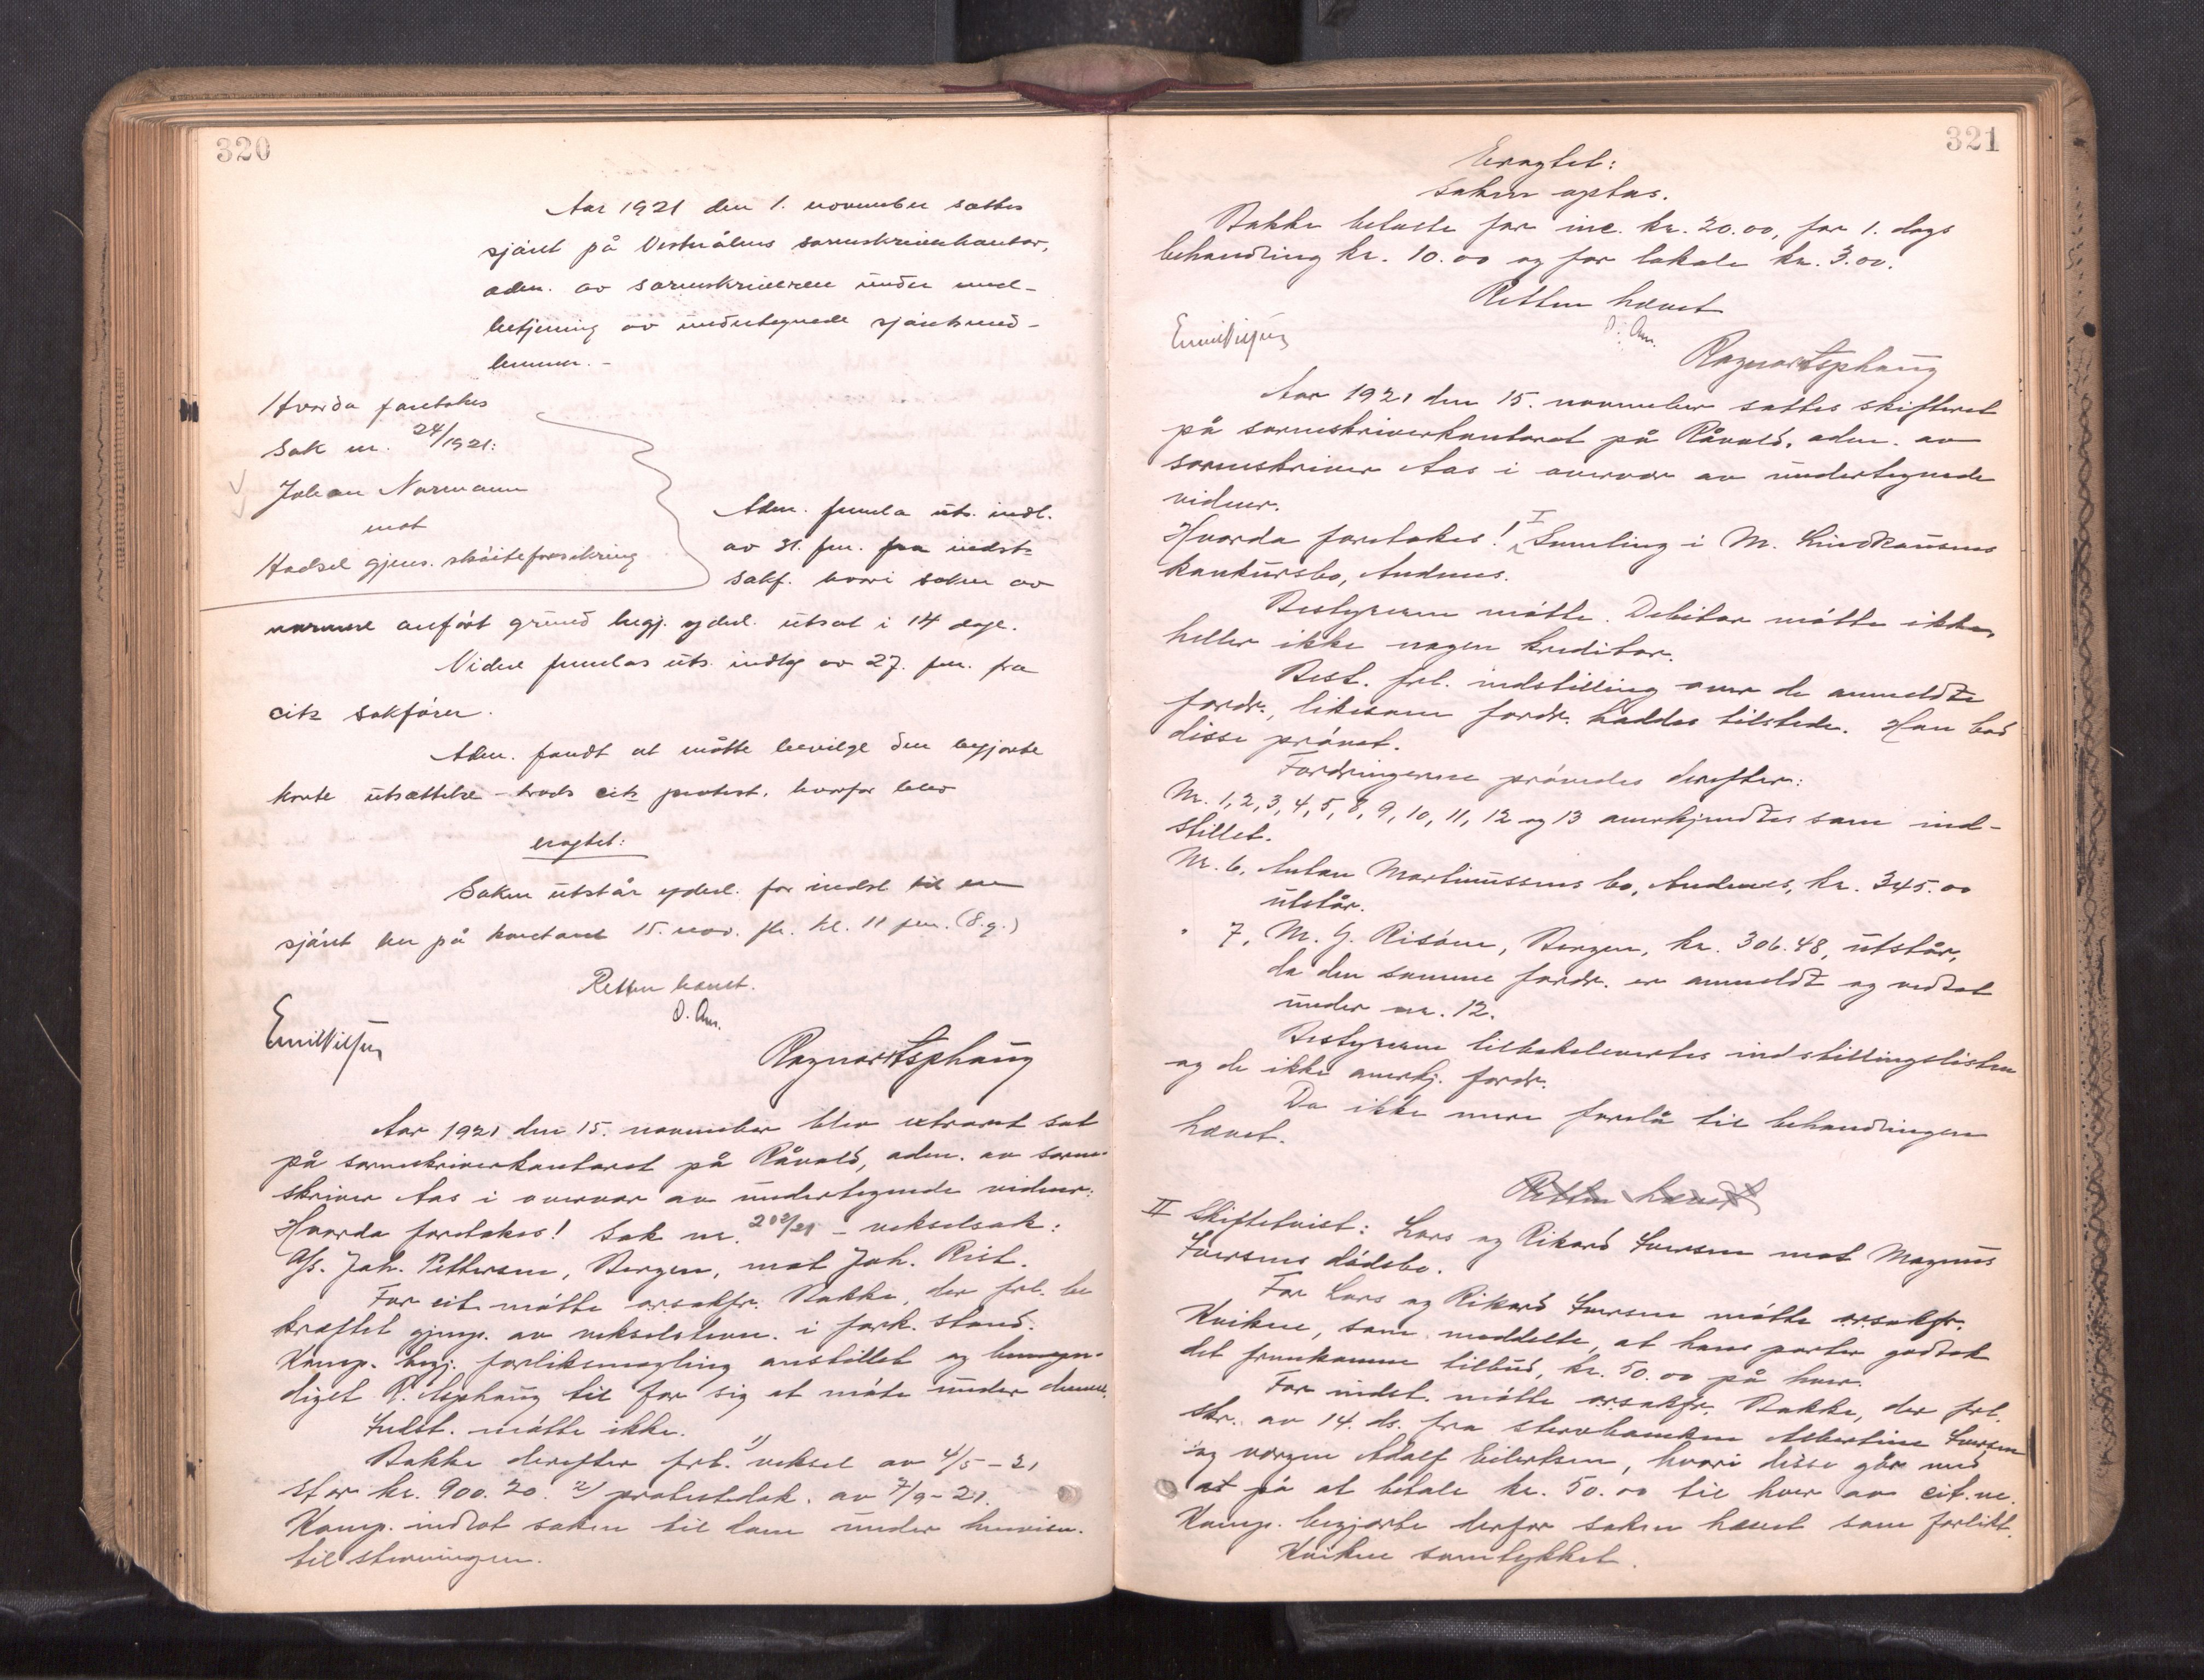 320
Aar 1921 den 1. november sattes
sjöret på Vesterålens sorenskriverkontor,
adm. av sorenskriveren under med-
betjening av undertegnede sjöretsmed-
lemmer. -
Hvorda foretokes
Sak nr. 24/1921:
Johan Normann
mot
Hadsel gjens. skøiteforsikring
Adm. freml. uts. indl.
av 31. f.m. fra indst.s
sakf. hvori saken av
nærmere anført grund begj. yderl. utsat i 14 dage.
Videre fremlas uts. indlæg av 27. f.m. fra
cit.s sakfører.
Adm. fandt at måtte bevilge den begjærte
korte utsættelse - trods cit.s protest, hvorfor blev
eragtet:
Saken utstår yderl. for indst. til en
sjöret her på kontoret 15. nov. fk. kl. 11 fm. (8.g.)
Retten hævet.
O. Aas.
Emil Nilsen
Ragnar Asphaug
Aar 1921 den 15. november blev extraret sat
på sorenskriverkontoret på Råvold, adm. av soren-
skriver Aas i overvær av undertegnede vidner:
Hvorda foretokes! Sak nr. 202/21 - vekselsak:
A/s. Joh. Pettersen, Bergen, mot Joh. Rist.
For cit. møtte o.r.sakfr. Bakke, der frl. be
kræftet gjenp. av vekselstevn. i fork. stand.
Komp. begj. forliksmægling anstillet og bemyn-
diget R. Asphaug til for sig at møte under denne.
Indst. møtte ikke.
Bakke derefter frl. 1) veksel av 4/5 - 21
stor kr. 900.20. 2) protestdok. av 7/9 - 21.
Komp. indlot saken til dom under henvisn.
til stevningen.
321
Eragtet:
Saken optas.
Bakke betalte for inc. kr. 20.00, for 1. dags
behandling kr. 10.00 og for lokale kr. 3.00.
Retten hævet
O. Aas.
Emil Nilsen
Ragnar Asphaug
Aar 1921 den 15. november sattes skifteret
på sorenskriverkontoret på Råvold, adm. av
sorenskriver Aas i overvær av undertegnede
vidner.
Hvorda foretokes! I Samling i M. Lindkausens
konkursbo, Andenes.
Bestyreren møtte. Debitor møtte ikke,
heller ikke nogen kreditor.
Best. frl. indstilling over de anmeldte
fordr., likesom fordr. haddes tilstede. Han bad
disse prøvet.
Fordringerne prøvedes derefter:
Nr. 1, 2, 3, 4, 5, 8, 9, 10, 11, 12 og 13 anerkjendtes som ind-
stillet.
Nr. 6, Anton Martinussens bo, Andenes, kr. 345.00
utstår.
" 7, M. G. Risöen, Bergen, kr. 306.48, utstår,
da den samme fordr. er anmeldt og vedtat
under nr. 12.
Bestyreren tilbakelevertes indstillingslisten
og de ikke anerkj. fordr.
Da ikke mere forelå til behandlingen
hævet.
Retten hævet
II Skiftetvist: Lars og Rikard Iversen mot Magnus
Iversens dödsbo.
For Lars og Rikard Iversen møtte o.r.sakfr.
Kvikne, som meddelte, at hans parter godtok
det fremkomne tilbud, kr. 50.00 på hver.
For indst. møtte o.r.sakfr. Bakke, der frl.
skr. av 14. ds. fra stervboenken Albertine Iversen
og vergen Adolf Eilertsen, hvori disse går med
at på at betale kr. 50.00 til hver av cit.ne.
Komp. begjærte derfor saken hævet som forlikt.
Kvikne samtykket.